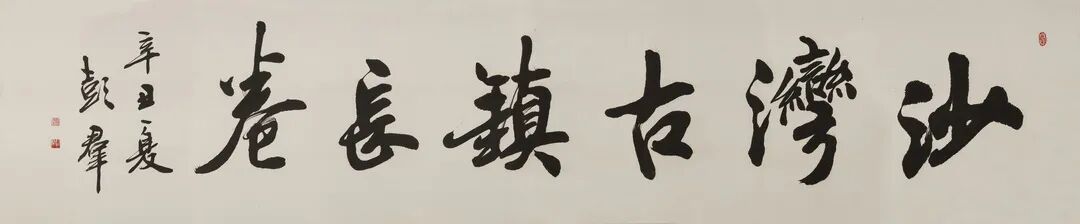 沙灣古鎮長卷
辛丑夏
彭羣